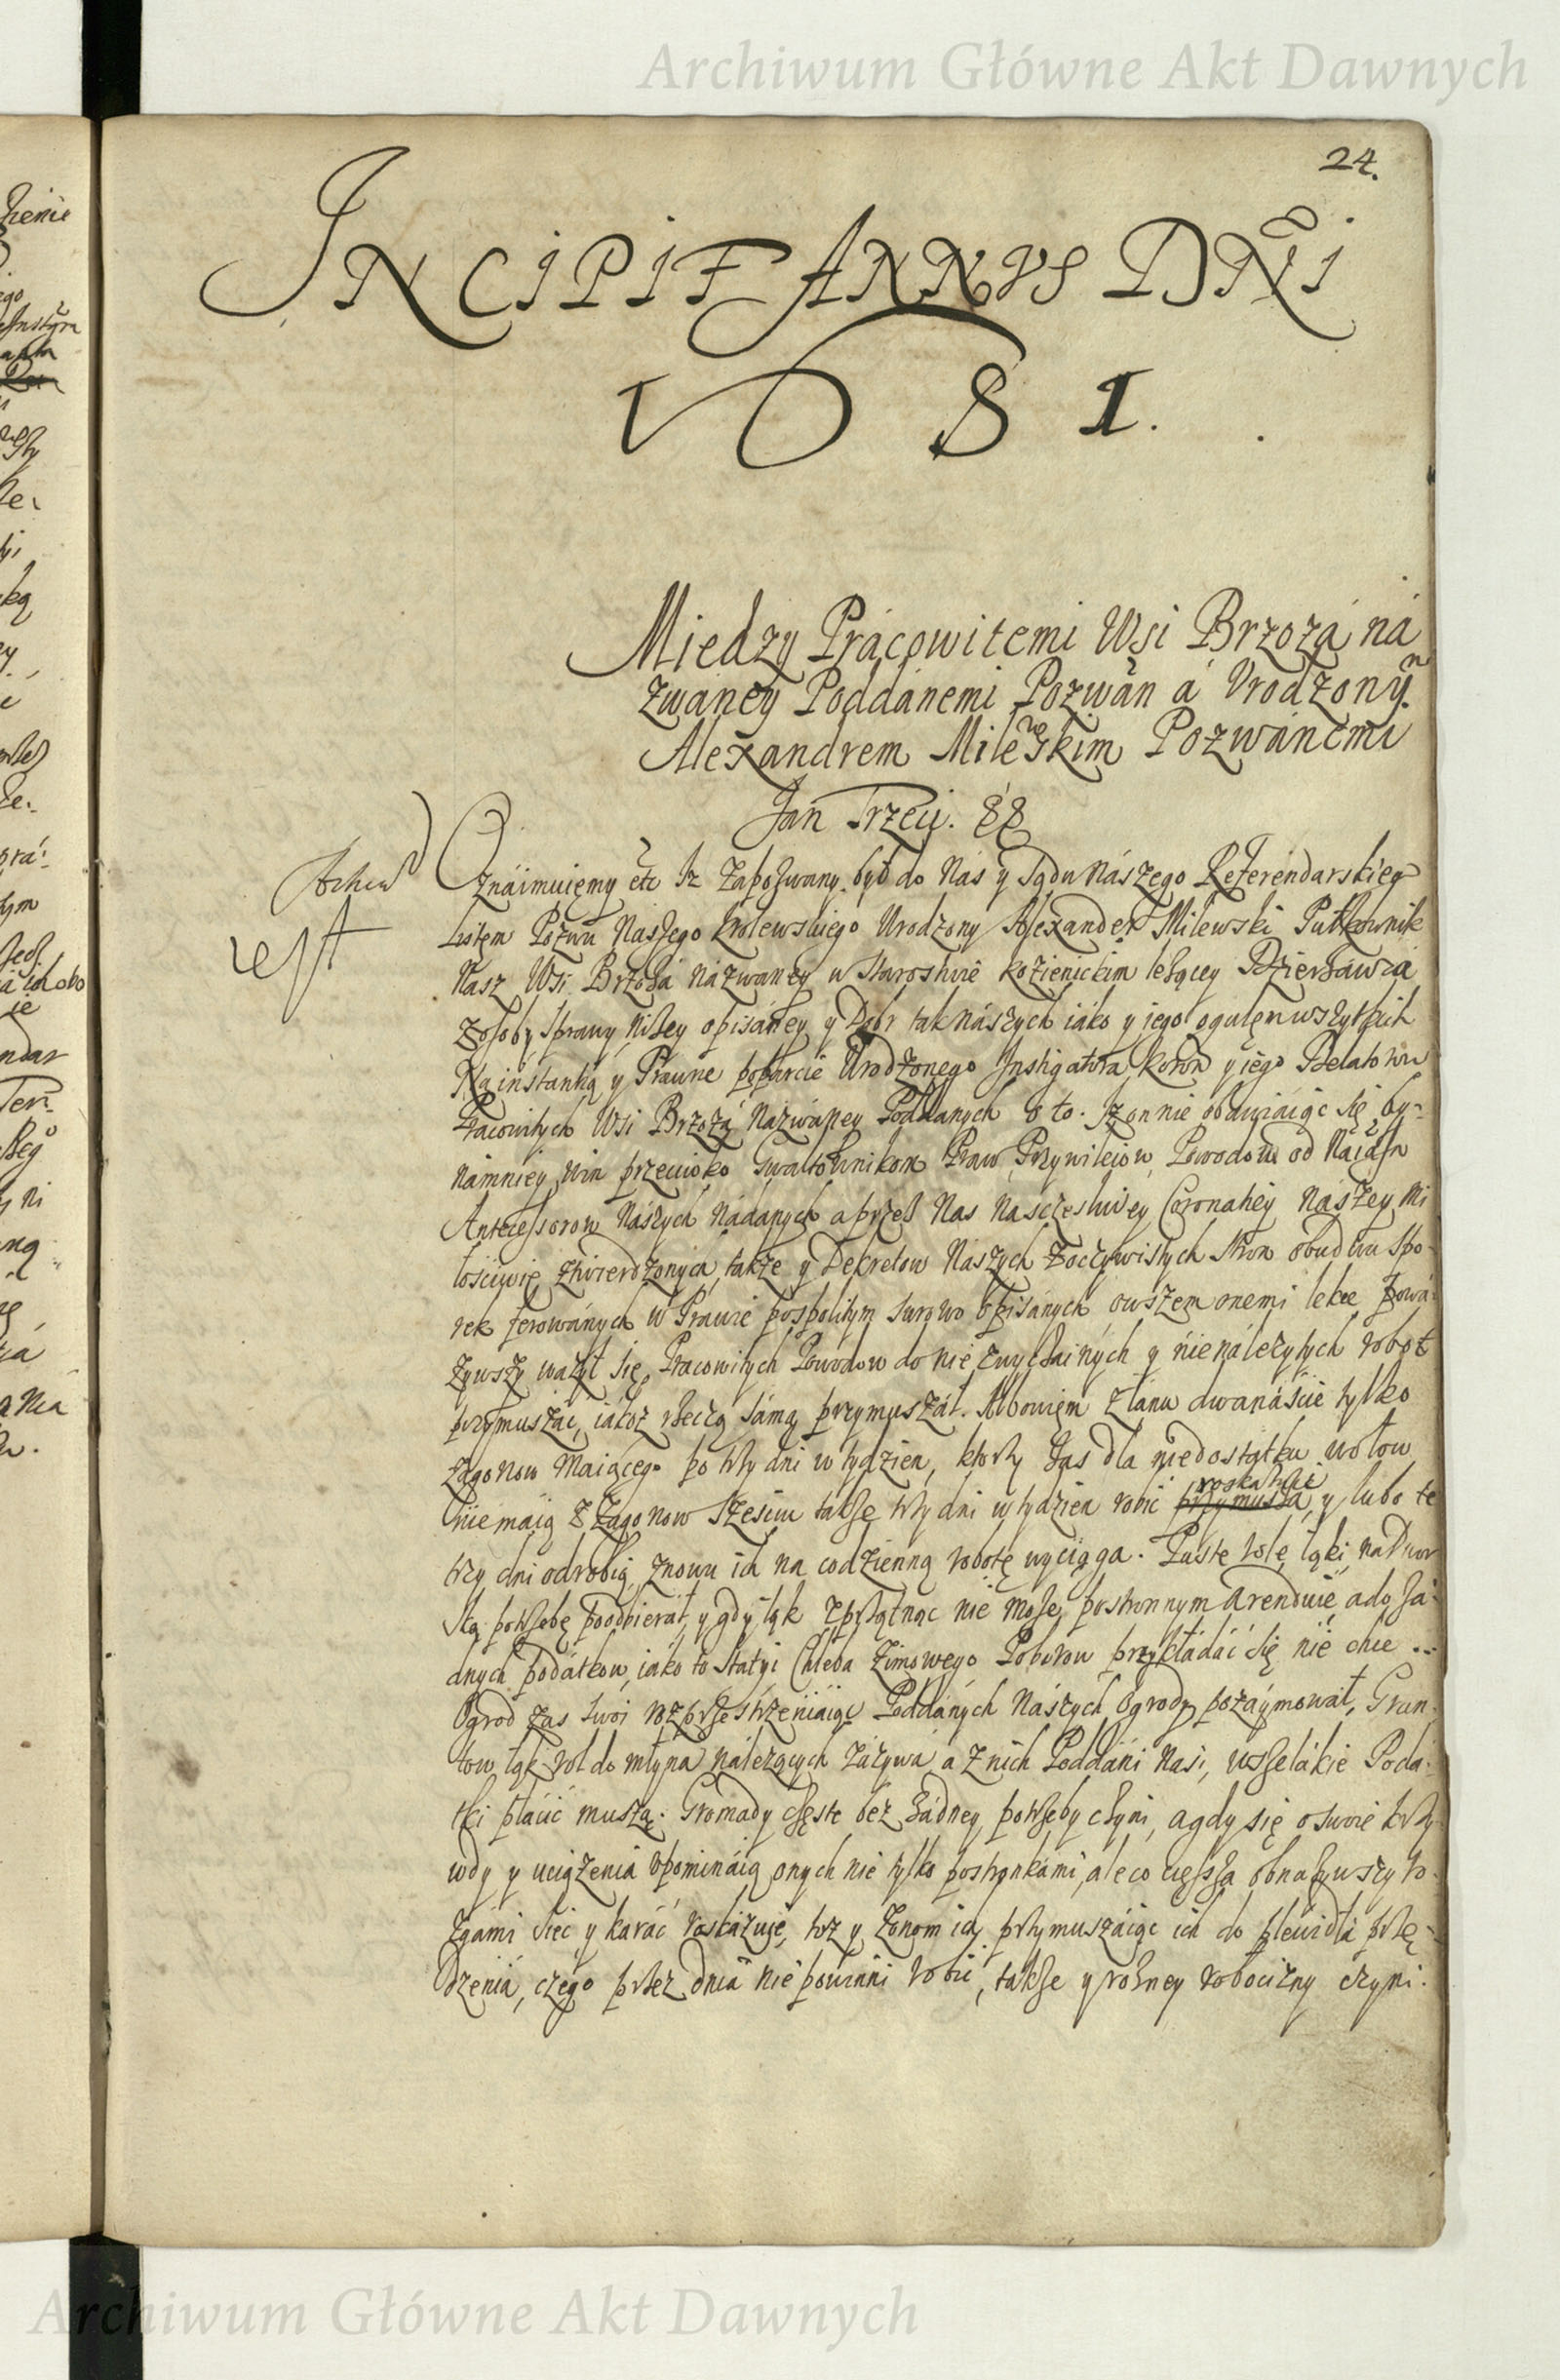 Archiwum Główne Akt Dawnych
24.
INCIPIT ANNVS DNI
1681.
Między Pracowitemi Wsi Brzoza na
zwaney Poddanemi Pozwan a Vrodzonym
Alexandrem Milewskim Pozwanemi
Jan Trzeci.
Oznaimuięmy etc Iz Zapozwany był do Nas y Sądu Naszego Referendarskiego
Listęm Pozwu Naszego krolewskiego Urodzony Alexander Milewski Pułkownik
Nasz Wsi Brzoza nazwaney w Starostwie kozienickim leżącey Dzierżawca
Zosoby sprawy niżey opisaney y Dobr tak naszych iako y jego ogulęm wszytkich
Na instantią y Prawne poparcie Urodzonego Instigatora koron y iego Delatorow
Pracowitych Wsi Brzoza Nazwaney Poddanych o to. Iz on nie obawiaiąc się by-
namniey win przeciwko Gwałtownikom Praw, Przywileiow, Powodow od Naiasn
Antecessorow Naszych Nadanych a przez Nas na sczęsliwey Coronatiey Naszey Mi
łosciwie ztwierdzonych, także y Dekretow Naszych Zoczywistych stron obudwu spo-
rek ferowanych w Prawie pospolitym surowo opisanych, owszem onemi lekce powa-
zywszy ważył się Pracowitych Powodow do nie zwyczainych y nienależytych robot
przymuszac, iakoż rzeczą samą przymuszał. Albowięm Złanu dwanascie tylko
zagonow Maiącego po trzy dni w tydzien, ktorzy zas dla niedostatku wołow
nie maią Z Zagonow szesciu także trzy dni w tydzien robic przymusza roskazuie, y lubo te
trzy dni odrobią, znowu ich na codzienną robotę wyciąga. Puste role, łąki, na Dwor
ską potrzebę poodbierał, y gdy łąk zprzątnąc nie może, postronnym arenduie, a do ża-
dnych podatkow, iako to Statyi Chleba Zimowego Poborow przykładać się nie chce
Ogrod zas swoi rozprzestrzeniaiąc Poddanych Naszych Ogrody pozaymował, Grun-
tow łąk rol do młyna należących zażywa a Z nich Poddani Nasi, wszelakie Poda-
tki płacić muszą. Gromady częste bez żadney potrzeby czyni, a gdy się o swoie krzy
wdy y uciążenia upominaią onych nie tylko postronkami, ale co cięższa obnażywszy ro-
zgami siec y karać roskazuie, toz y żonom ich przymuszaiąc ich do plewidła przę-
dzenia, czego przez dnia nie powinni robić, także y rożney robocizny czyni.
Archiwum Główne Akt Dawnych